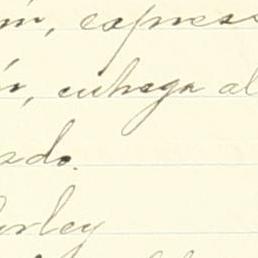 n, expres
n, entrega al
ado.
urley